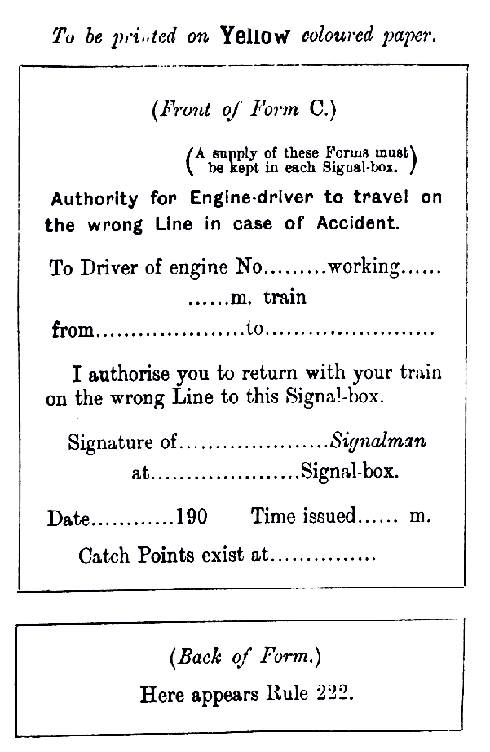 To be printed on Yellow coloured paper.
(Front of Form C.)
(A supply of these Forms must
be kept in each Signal-box.)
Authority for Engine-driver to travel on
the wrong Line in case of Accident.
To Driver of engine No.........working......
......m. train
from......................to.........................
I authorise you to return with your train
on the wrong Line to this Signal-box.
Signature of......................Signalman
at......................Signal-box.
Date............190 Time issued...... m.
Catch Points exist at...............
(Back of Form.)
Here appears Rule 222.